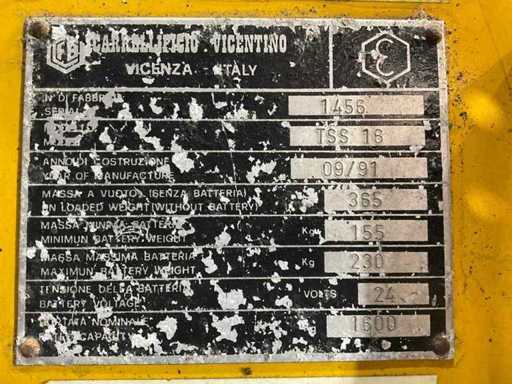 CARRELLIFICIO VICENTINO
VICENZA ITALY
N° DI FABBR
SERIAL 1456
TSS 16
ANNO DI COSTRUZIONE
YEAR OF MANUFACTURE 09/91
MASSA A VUOTO (SENZA BATTERIA)
UN LOADED WEIGHT (WITHOUT BATTERY) 365
MASSA MINIMA BATTERIA
MINIMUN BATTERY WEIGHT Kg 155
MASSA MASSIMA BATTERIA
MAXIMUN BATTERY WEIGHT Kg 230
TENSIONE DELLA BATTERIA
BATTERY VOLTAGE VOLTS 24
PORTATA NOMINALE
CAPACIT Kg 1600